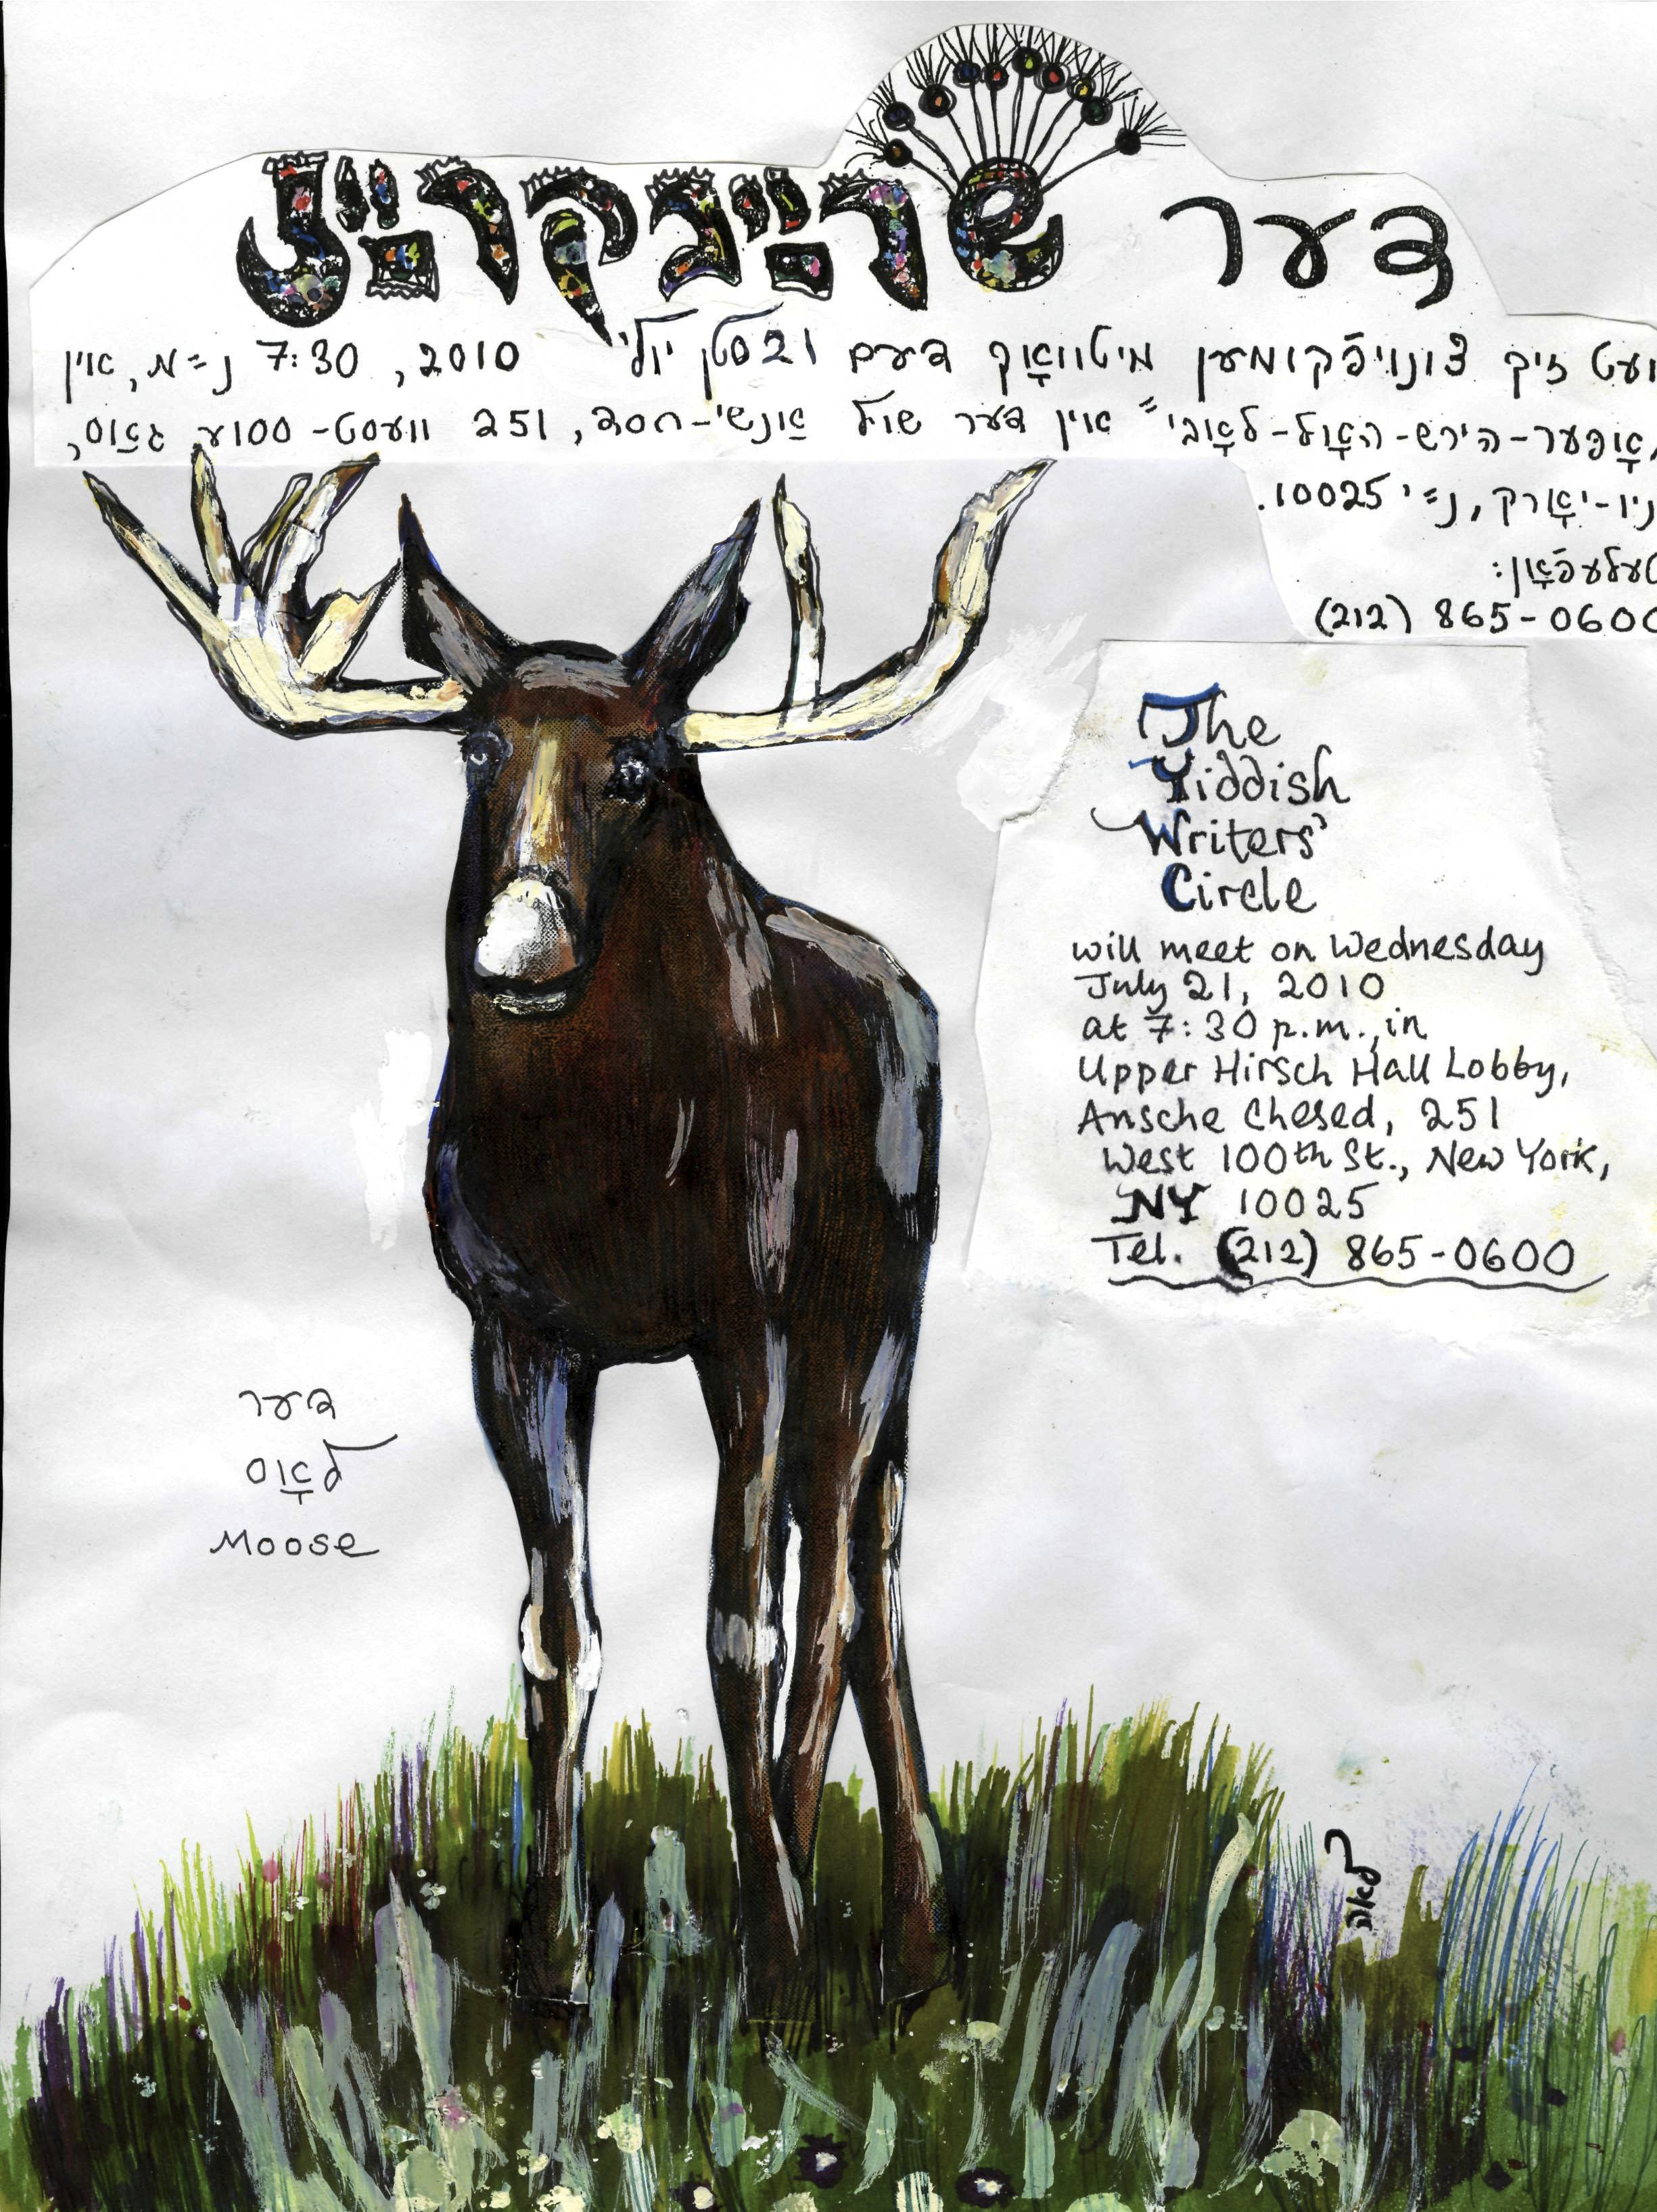 דער שרײַבקרײַז
וועט זיך צונויפֿקומען מיטוואָך דעם 21סטן יולי 2010, 7:30 נ״מ, אין
„אָופּער-הירש-האָל-לאָבי״ אין דער שול אַנשי-חסד, 251 וועסט-100ער גאַס,
ניו-יאָרק, נ״י 10025.
טעלעפֿאָן:
(212) 865-0600
The
Yiddish
Writers'
Circle
will meet on Wednesday
July 21, 2010
at 7:30 p.m., in
Upper Hirsch Hall Lobby,
Ansche Chesed, 251
West 100th St., New York,
NY 10025
Tel. (212) 865-0600
דער
לאָס
Moose
לאה